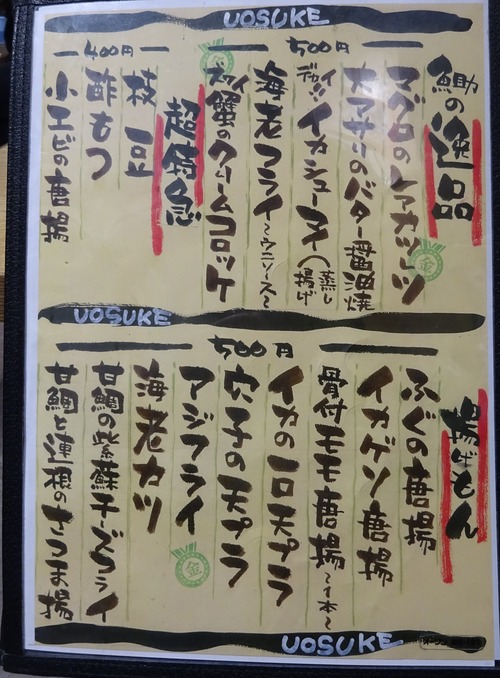 UOSUKE
鮊の逸品
500円
マグロのレアカツ
大アサリのバター醤油焼
デカッ!!イカシューマイ(蒸し 揚げ
海老フライ〜ウニソース〜
ズワイ蟹のクリームコロッケ
超特急
400円
枝豆
酢もつ
小エビの唐揚
UOSUKE
揚げもん
500円
ふぐの唐揚
イカゲソ唐揚
骨付モモ唐揚〜1本〜
イカの一口天プラ
穴子の天プラ
アジフライ
海老カツ
甘鯛の紫蘇チーズフライ
甘鯛と蓮根のさつま揚
金
金
金
UOSUKE